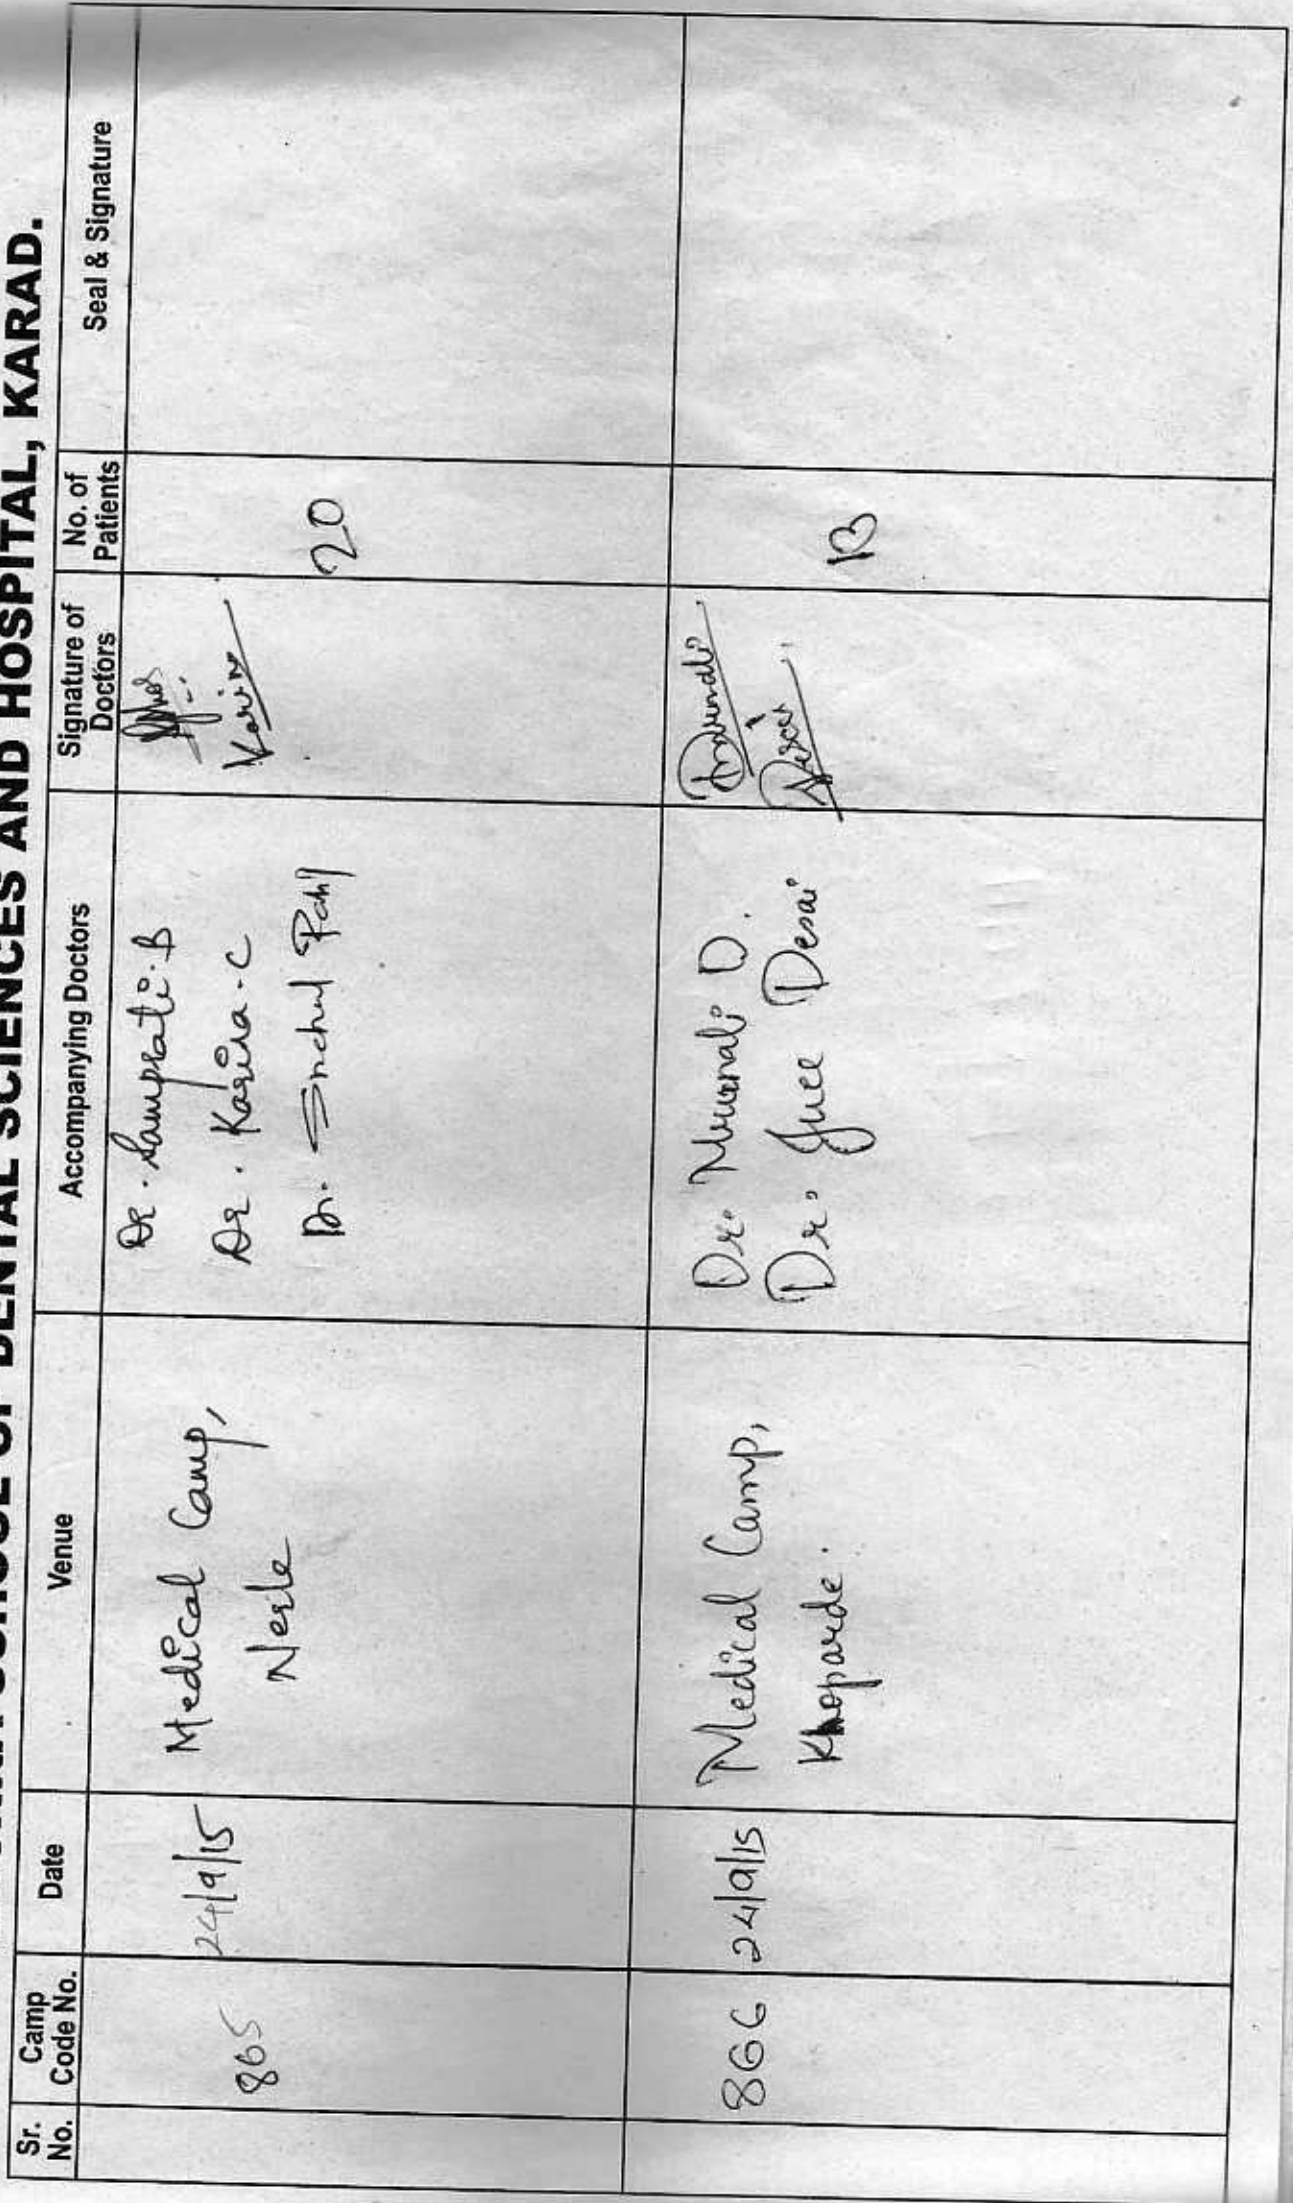 SCHOOL OF DENTAL SCIENCES AND HOSPITAL, KARAD.
Sr. No. Camp Code No. Date Venue Accompanying Doctors Signature of Doctors No. of Patients Seal & Signature
865 24/9/15 Medical Camp, Nerle
Dr. Samprati. B
Dr. Karina. C
Dr.
Karina
20
866 24/9/15 Medical Camp, Khoparde.
Dr. Mrunali D.
Dr. Juee Desai
Desai
13